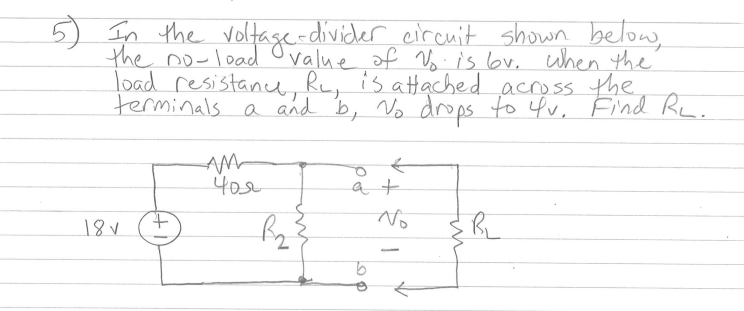 5) In the voltage-divider circuit shown below,
the no-load value of Vo is 6v. When the
load resistance, RL, is attached across the
terminals a and b, Vo drops to 4v. Find RL.
40Ω
a +
18v
+
-
R2
Vo
RL
-
b